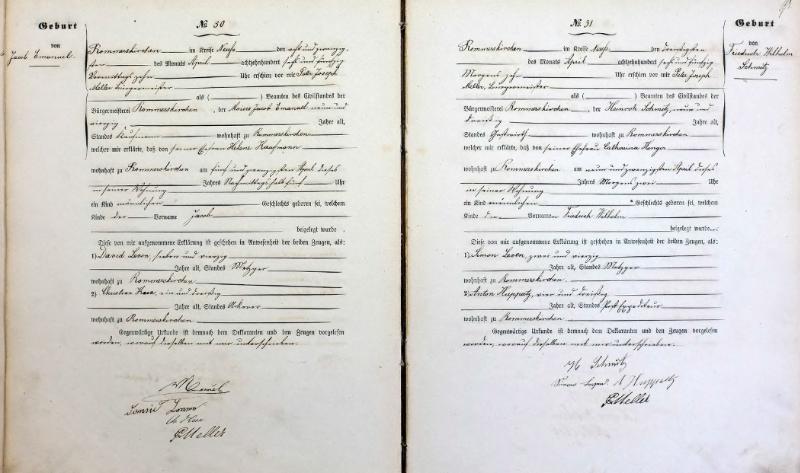 Geburt
von
Jacob Emanuel.
№ 30
Rommerskirchen im Kreise Neuss den acht und zwanzig-
ten des Monats April achthundertsechs und fünfzig
Vormittags zehn Uhr erschien vor mir Peter Joseph
Meller Bürgermeister
als ( ) Beamten des Civilstandes der
Bürgermeisterei Rommerskirchen, der Moses Jacob Emanuel, neun und
vierzig Jahre alt,
Standes Kaufmann wohnhaft zu Rommerskirchen
welcher mir erklärte, daß von seiner Ehefrau Helena Kaufmann
wohnhaft zu Rommerskirchen am fünf und zwanzigsten April dieses
Jahres Nachmittags halb fünf Uhr
in seiner Wohnung
ein Kind männlichen Geschlechts geboren sei, welchem
Kinde der Vorname Jacob
beigelegt wurde.
Diese von mir aufgenommene Erklärung ist geschehen in Anwesenheit der beiden Zeugen, als:
1) David Leven, sieben und vierzig
Jahre alt, Standes Metzger
wohnhaft zu Rommerskirchen
2) ein und dreißig
Jahre alt, Standes Ackerer
wohnhaft zu Rommerskirchen
Gegenwärtige Urkunde ist demnach dem Deklaranten und den Zeugen vorgelesen
worden, worauf dieselben mit mir unterschrieben.
PMeller
№ 31
Geburt
von
Friedrich Wilhelm
Schmitz
Rommerskirchen im Kreise Neuss den dreißigsten
des Monats April achthundertsechs und fünfzig
Morgens zehn Uhr erschien vor mir Peter Joseph
Meller, Bürgermeister
als ( ) Beamten des Civilstandes der
Bürgermeisterei Rommerskirchen, der Heinrich Schmitz, neun und
dreißig Jahre alt,
Standes Gastwirth wohnhaft zu Rommerskirchen
welcher mir erklärte, daß von seiner Ehefrau Catharina
wohnhaft zu Rommerskirchen am neun und zwanzigsten April dieses
Jahres Morgens zwei Uhr
in seiner Wohnung
ein Kind männlichen Geschlechts geboren sei, welchem
Kinde die Vornamen Friedrich Wilhelm
beigelegt wurde.
Diese von mir aufgenommene Erklärung ist geschehen in Anwesenheit der beiden Zeugen, als:
1) Simon Leven, zwei und vierzig
Jahre alt, Standes Metzger
wohnhaft zu Rommerskirchen
2) Anton Huppertz, vier und dreißig
Jahre alt, Standes Postexpediteur
wohnhaft zu Rommerskirchen
Gegenwärtige Urkunde ist demnach dem Deklaranten und den Zeugen vorgelesen
worden, worauf dieselben mit mir unterschrieben.
H Schmitz
A Huppertz
PMeller